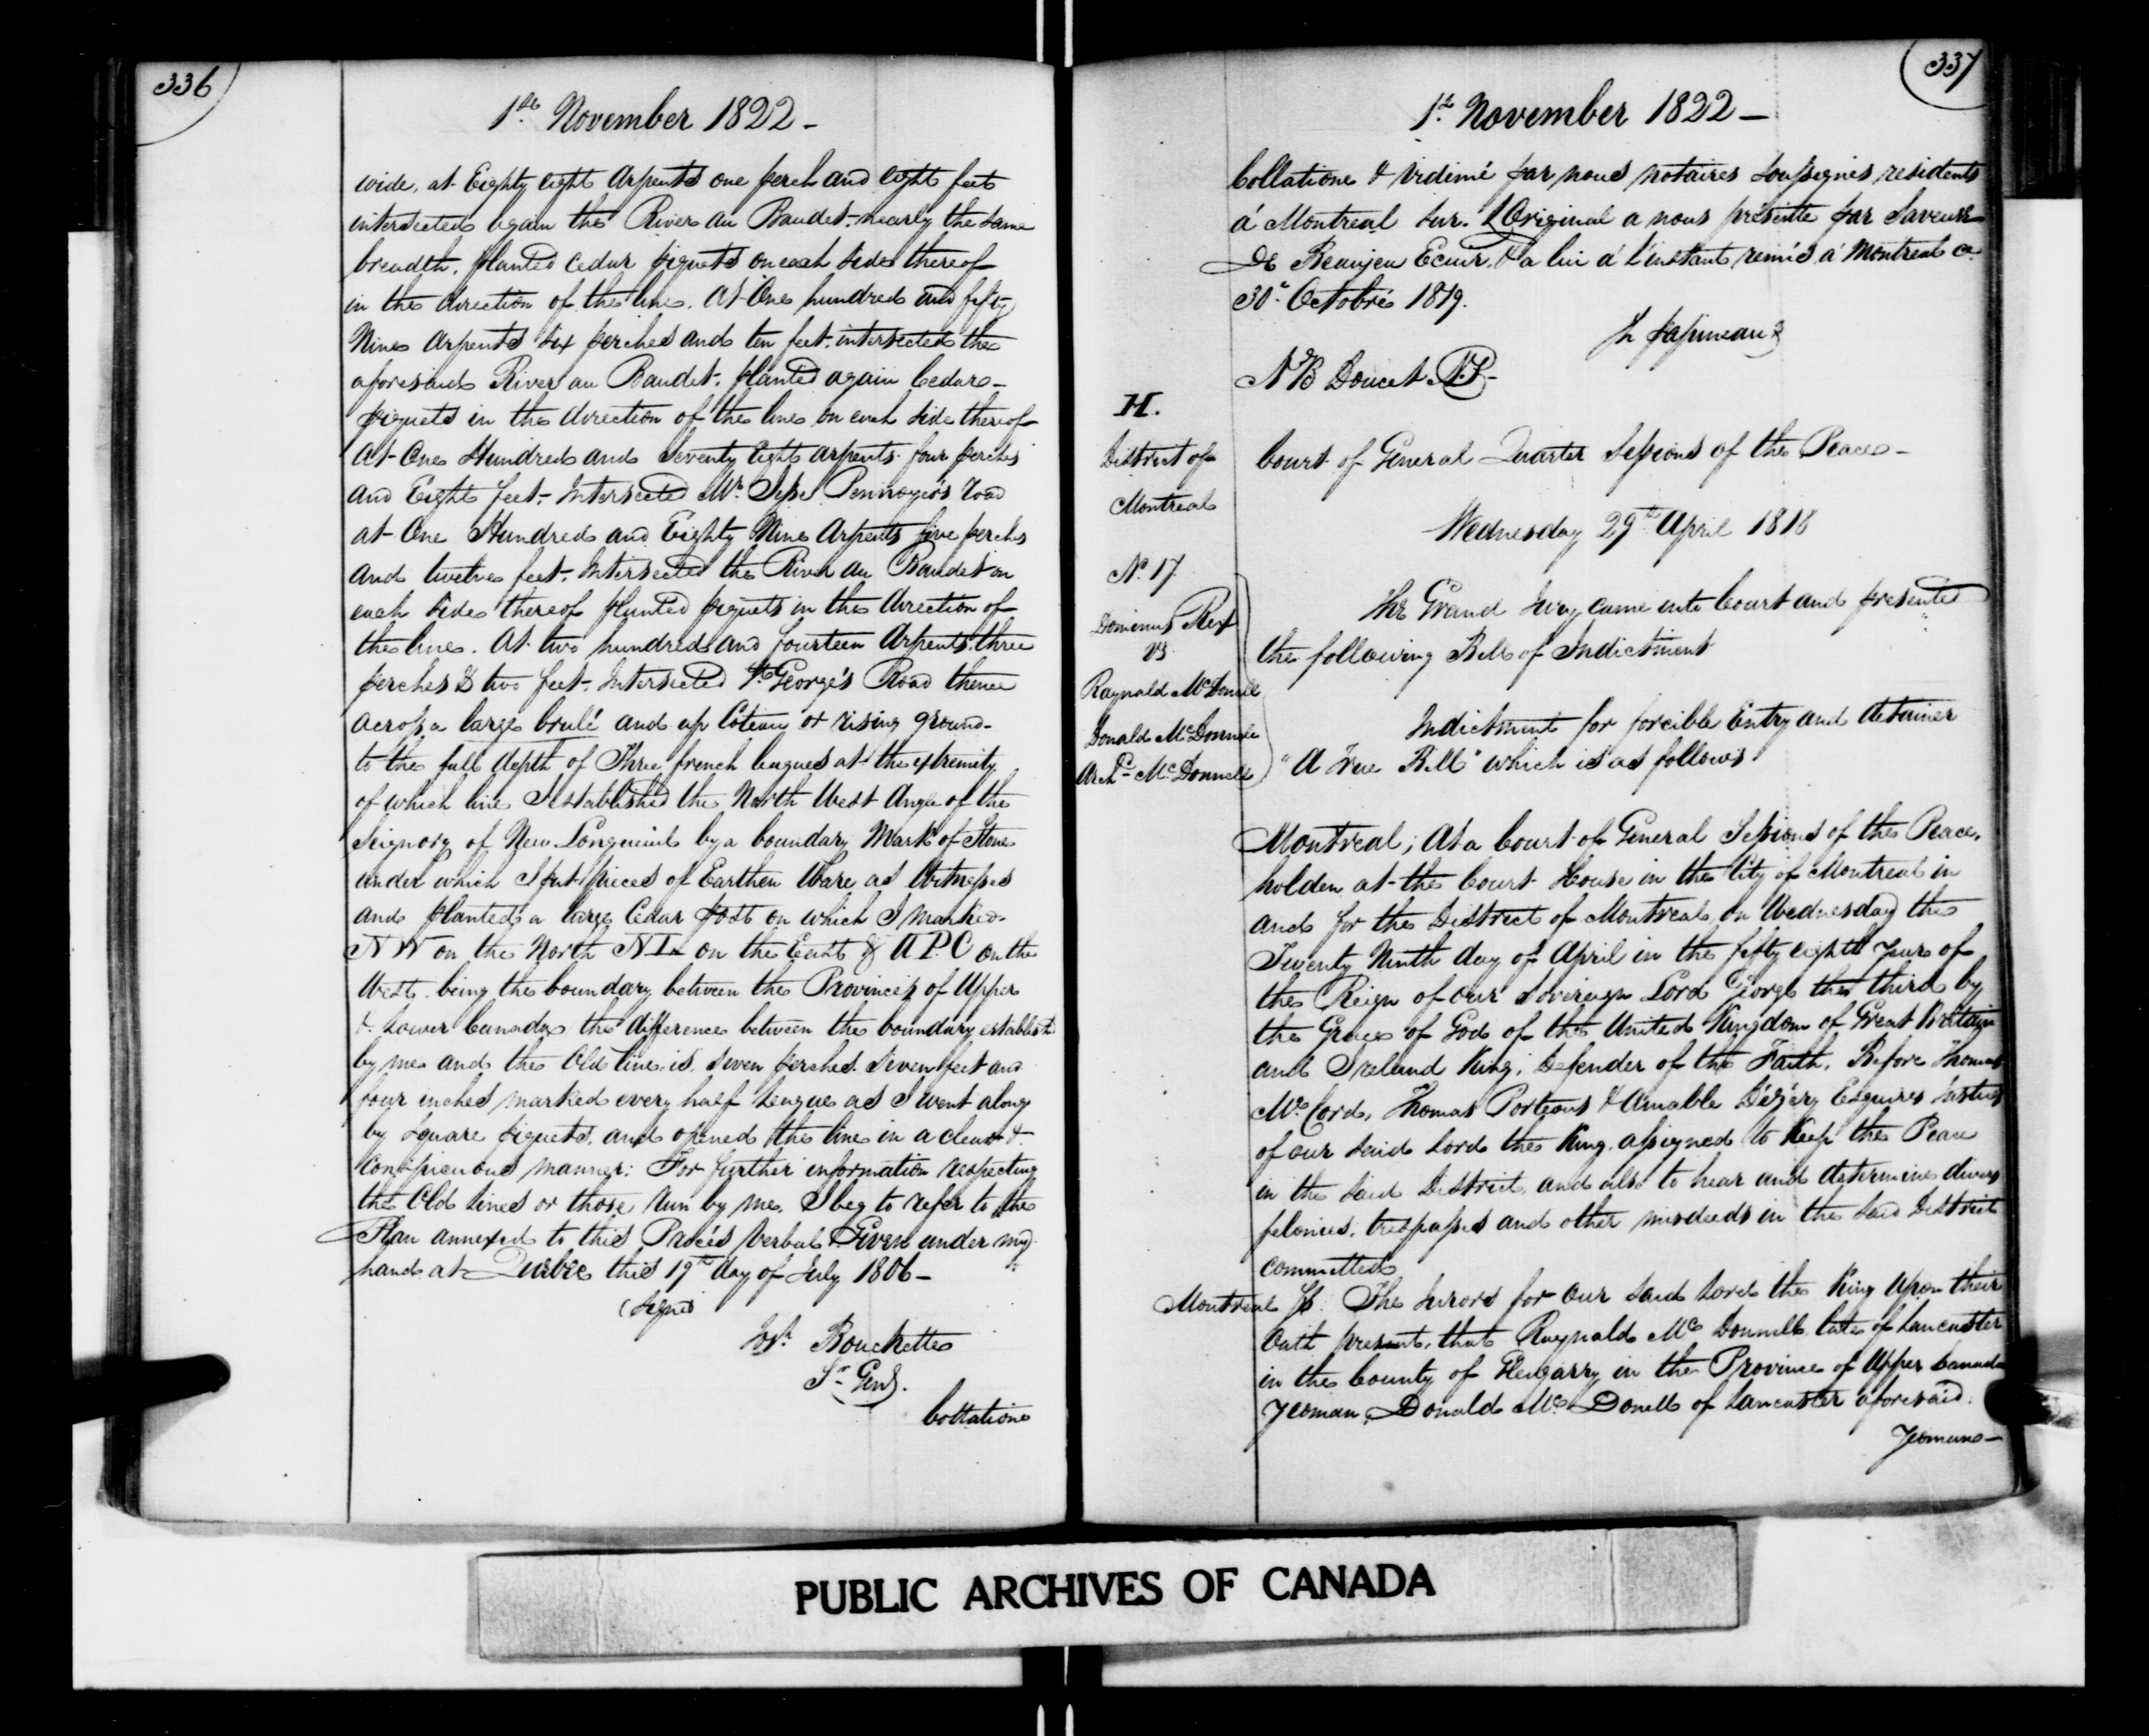 336
1st November 1822 -
wide, at Eighty eight Arpents one perch and eight feet
intersected again the River au Baudet - nearly the same
breadth, planted cedar piquets on each side thereof
in the direction of the line. At One hundred and fifty
Nine Arpents six perches and ten feet, intersected the
aforesaid River au Baudet, planted again Cedar -
piquets in the direction of the line on each side thereof
At One Hundred and Seventy Eight arpents four perches
and Eight feet - Intersected Mr. Jesse Pennoyer's road
at One Hundred and Eighty Nine Arpents five perches
and twelve feet, Intersected the River au Baudet on
each side thereof planted piquets in the direction of
the line. At two hundred and fourteen Arpents three
perches & two feet, Intersected St. George's Road thence
across a large brulé and up Coteau or rising ground -
to the full depth of Three french leagues at the extremity
of which line I established the North West Angle of the
Seignory of New Longueuil by a boundary Mark of Stone
under which I put pieces of Earthen Ware as Witnesses
and planted a large Cedar post on which I marked -
N W on the North N L on the East & U P. C on the
West, being the boundary between the Provinces of Upper
& Lower Canada the difference between the boundary establish'd
by me and the Old line, is, seven perches Seven feet and
four inches marked every half league as I went along
by square piquets, and opened the line in a clear &
conspicuous manner: For further information respecting
the Old lines or those run by me, I beg to refer to the
Plan annexed to this Procés Verbal. Given under my
hand at Quebec this 19th day of July 1806 -
(Signed
Bouchette
Sr. Genl.
Collationé
337
1st November 1822 -
Collationé & vidimé par nous notaires soussignés residents
á Montreal sur L'Original a nous présenté par Saveuse
De Beaujeu Ecuier, & a lui á l'instant remis á Montreal ce
30e Octobré 1819.
L Papineau
N B Doucet N.P.
H.
District of
Montreal
Court of General Quarter Sessions of the Peace -
Wednesday 29th April 1818
No. 17
Dominus Rex
vs
Raynald McDonell
Donald McDonnell
Archd. McDonnell
The Grand Jury came into Court and presented
the following Bill of Indictment
Indictment for forcible Entry and detainer
"A True Bill" which is as follows
Montreal; At a Court of General Sessions of the Peace,
holden at the Court House in the City of Montreal in
and for the District of Montreal on Wednesday the
Twenty Ninth day of April in the fifty eighth year of
the Reign of our Sovereign Lord George the third by
the Grace of God of the United Kingdom of Great Britain
and Ireland King, Defender of the Faith. Before Thomas
McCord, Thomas Porteous & Amable Dézéry Esquires Justices
of our said Lord the King assigned to Keep the Peace
in the said District, and also to hear and determine divers
felonies, trespasses and other misdeeds in the said District
committed
Montreal ss. The Jurors for our said Lord the King Upon their
Oath present, that Raynald McDonnell late of Lancaster
in the County of Glengarry in the Province of Upper Canada
Yeoman, Donald McDonell of Lancaster aforesaid.
Yeoman -
PUBLIC ARCHIVES OF CANADA